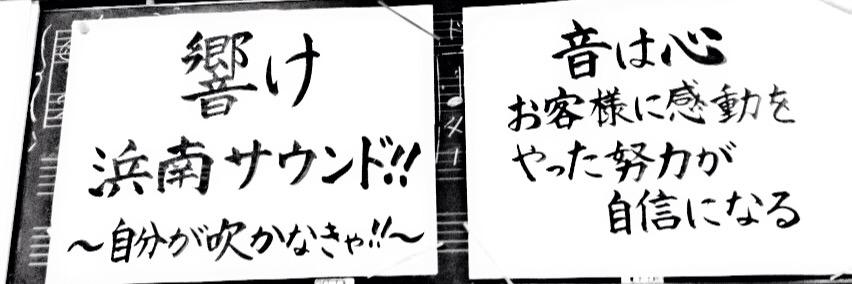 響け
浜南サウンド!!
〜自分が吹かなきゃ!!〜
音は心
お客様に感動を
やった努力が
自信になる